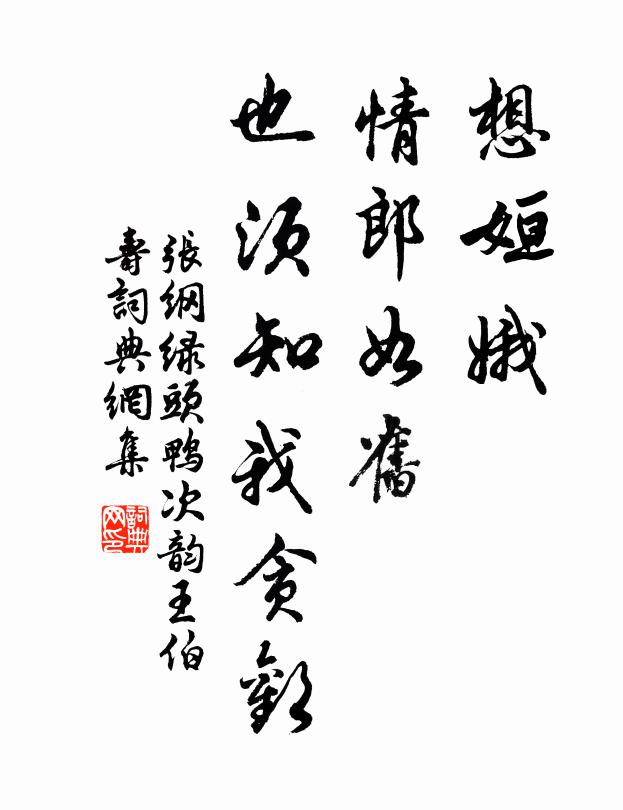 想姮娥
情郎如舊
也須知我貪歡
張綱綠頭鴨次韵王伯
壽詞典網集
詞典
网印